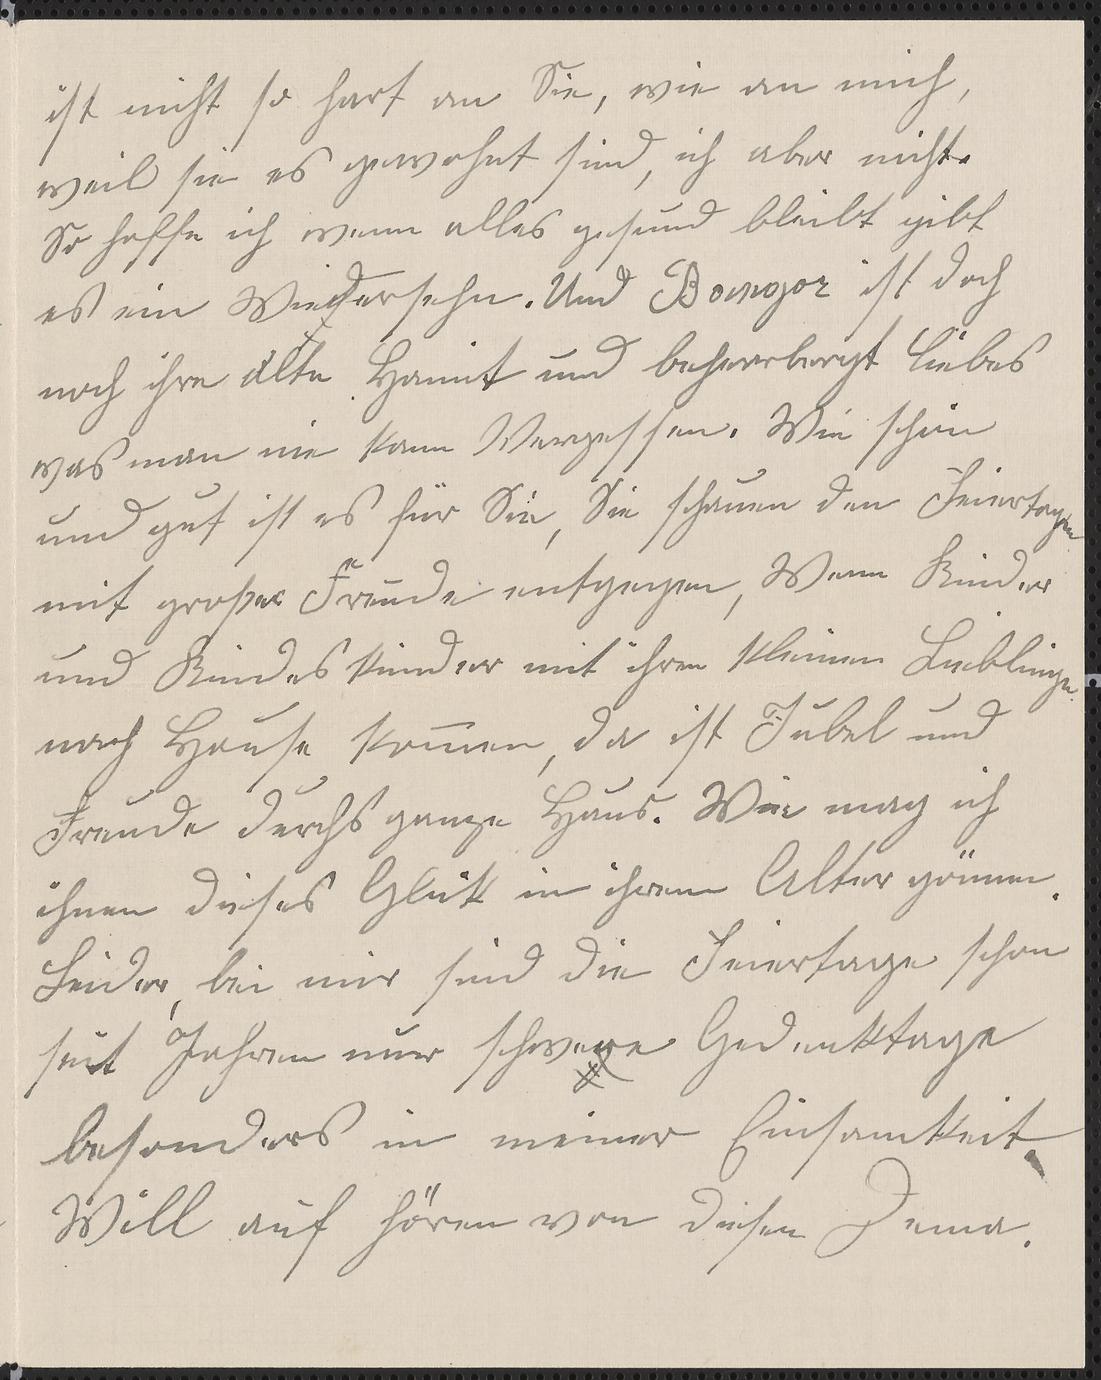 ist nicht so hart an Sie, wie an mich,
weil sie es gewohnt sind, ich aber nicht.
So hoffe ich wenn alles gesund bleibt gibt
es ein Wiedersehn. Und Bangor ist doch
noch ihre alte Hamit und beherbergt liebes
was man nie kann Vergessen. Wie schön
und gut ist es für Sie, Sie schauen den Feiertagen
mit großer Freude entgegen, Wenn Kinder
und Kindeskinder mit ihren kleinen Lieblinge
nach Hause kom̅en, da ist Jubel und
Freude durchs ganze Haus. Wie mag ich
ihnen dieses Glük in ihrem Alter gönnen.
Leider, bei mir sind die Feiertage schon
seit Jahren nur schwere Gedenktage
besonders in meiner Einsamkeit.
Will auf hören von diesen Tema.